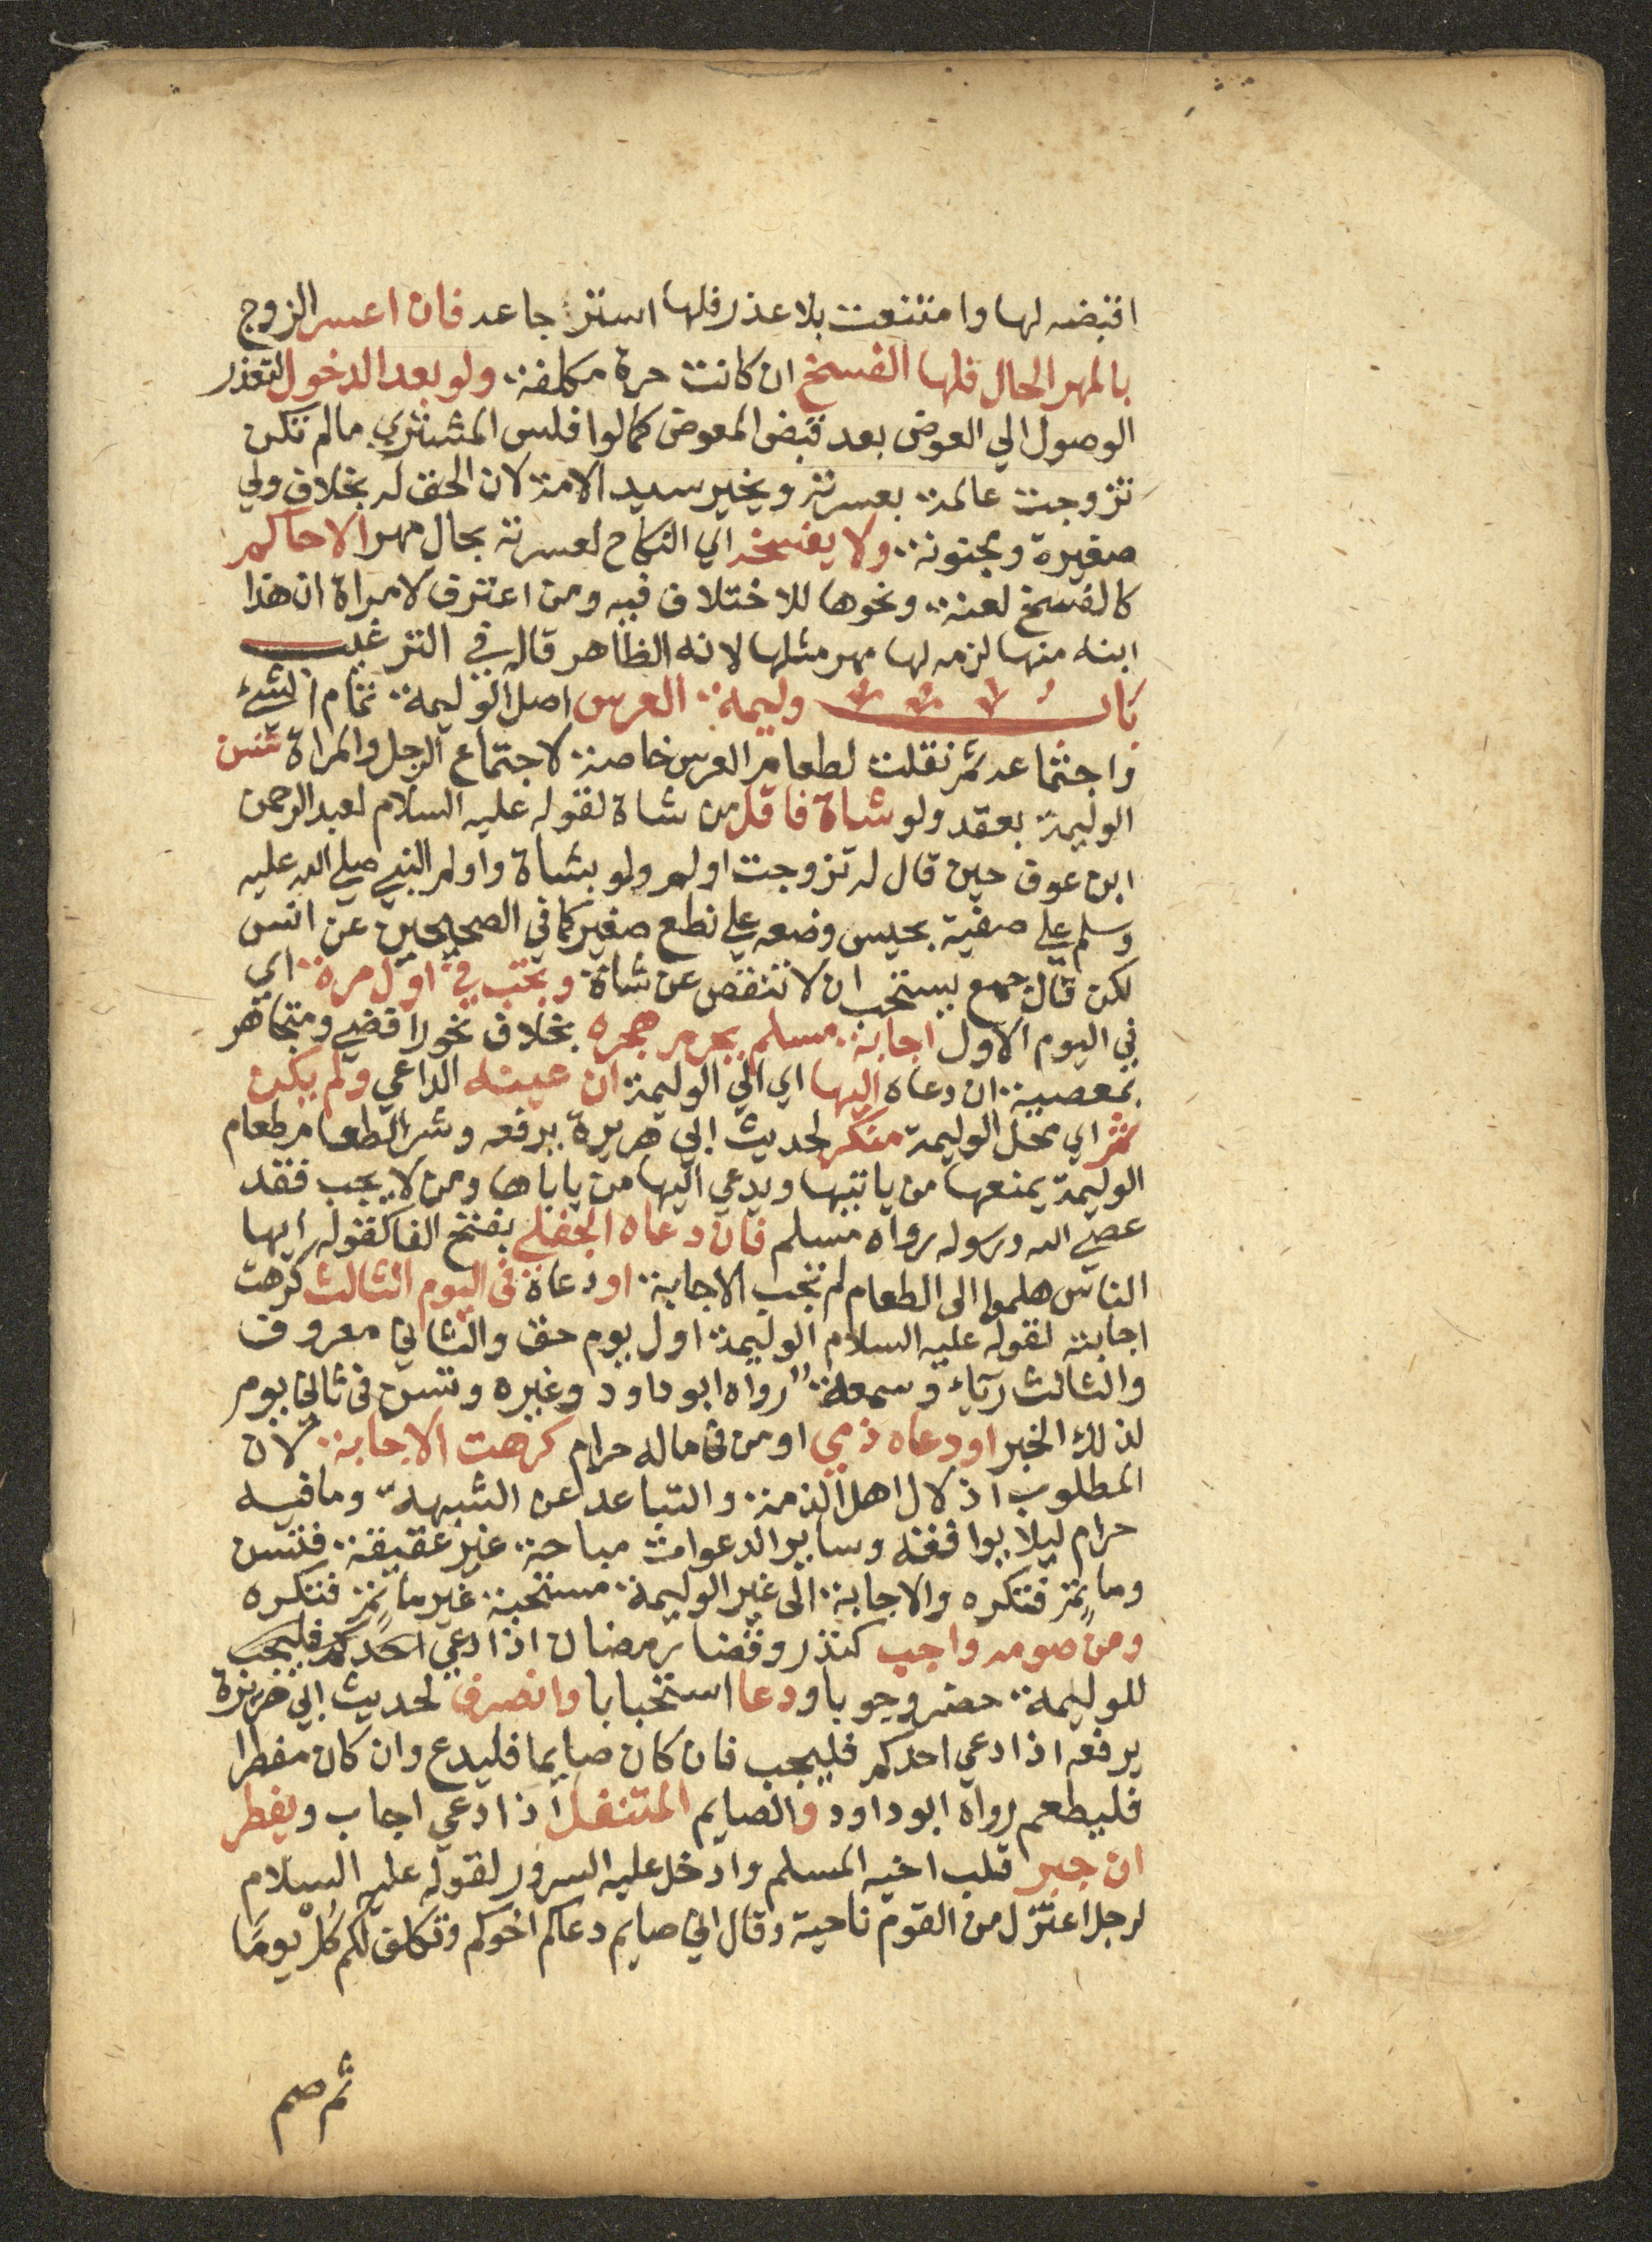 اقبضه لها وامتنعت بلا عذر فلها استرجاعه فان اعسر الزوج
بالمهر الحال فلها الفسخ ان كانت حرة مكلفة ولو بعد الدخول لتعذر
الوصول الي العوض بعد قبض المعوض كما لو افلس المشتري مالم تكن
تزوجت عالمة بعسرته ويخير سيد الامة لان الحق له بخلاف ولي
صغيرة ومجنونة ولا يفسخه اي النكاح لعسرته بحال مهر الا حاكم
كالفسخ لعنة ونحوها للاختلاف فيه ومن اعترف لامراة ان هذا
ابنه منها لزمه لها مهر مثلها لانه الظاهر قاله في الترغيب
باب وليمة العرس اصل الوليمة تمام الشئ
واجتماعه ثم نقلت لطعام العرس خاصة لاجتماع الرجل والمراة تسن
الوليمة بعقد ولو شاة فاقل من شاة لقوله عليه السلام لعبد الرحمن
ابن عوف حين قال له تزوجت اولم ولو بشاة واولم النبي صلي الله عليه
وسلم علي صفية بحيس وضعه علي نطع صغير كما في الصحيحين عن انس
لكن قال جمع يستحب ان لا تنقص عن شاة وتجب في اول مرة اي
في اليوم الاول اجابة مسلم يحرم هجره بخلاف نحو رافضي ومتجاهر
بمعصية ان دعاه اليها اي الي الوليمة ان عينه الداعي ولم يكن
ثم اي محل الوليمة منكر لحديث ابي هريرة يرفعه وشر الطعام طعام
الوليمة يمنعها من ياتيها ويدعي اليها من ياباها ومن لا يجب فقد
عصي الله ورسوله رواه مسلم فان دعاه الجفلي بفتح الفا كقوله ايها
الناس هلموا الى الطعام لم تجب الاجابة او دعاه فى اليوم الثالث كرهت
اجابته لقوله عليه السلام الوليمة اول يوم حق والثاني معروف
والثالث رياء وسمعة رواه ابو داود وغيره وتسن فى ثاني يوم
لذلك الخبر او دعاه ذمي او من فى ماله حرام كرهت الاجابة لان
المطلوب اذلال اهل الذمة والتباعد عن الشبهة وما فيه
حرام ليلا يواقعه وساير الدعوات مباحة غير عقيقة فتسن
وماتم فتكره والاجابة الى غير الوليمة مستحبة غير ماتم فتكره
ومن صومه واجب كنذر وقضا رمضان اذا دعي احدكم فليجب
للوليمة حضر وجوبا ودعا استحبابا وانصرف لحديث ابي هريرة
يرفعه اذا دعي احدكم فليجب فان كان صايما فليدع وان كان مفطرا
فليطعم رواه ابو داود والصايم المتنفل اذا دعي اجاب ويفطر
ان جبر قلب اخيه المسلم وادخل عليه السرور لقوله عليه السلام
لرجل اعتزل من القوم ناحية وقال اني صايم دعاكم اخوكم وتكلف لكم كل يوما
ثم صم